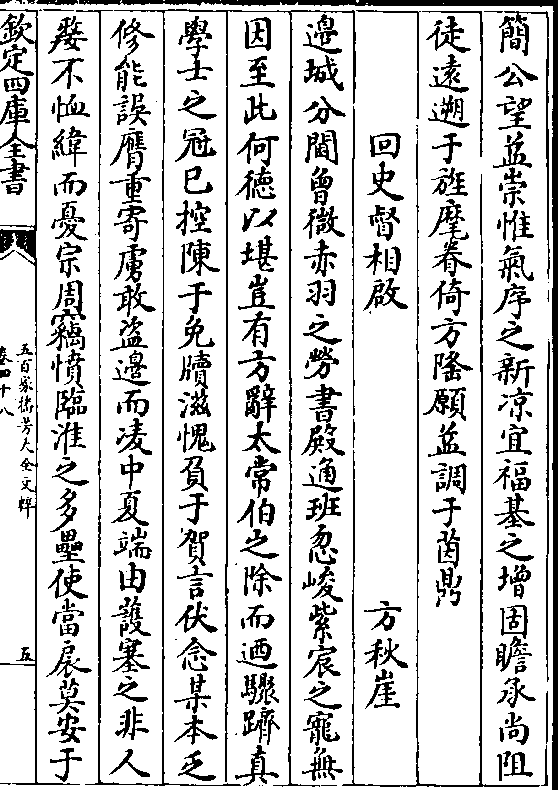 簡公望益崇惟氣序之新凉宜福基之增固瞻承尚阻
徒遠遡于旌麾眷倚方隆願益調于茵鼎
回史督相啟 方秋崖
邉城分閫曾微赤羽之勞書殿通班忽峻紫宸之寵無
因至此何德以堪豈有方辭太常伯之除而廼驟躋真
學士之冠已控陳于免牘滋愧負于賀言伏念某本乏
修能誤膺重寄虜敢盗邉而凌中夏端由䕶塞之非人
嫠不恤緯而憂宗周竊憤臨淮之多壘使當扆莫安于
欽定四庫全書
五百家播芳大全文粹
卷四十八
五